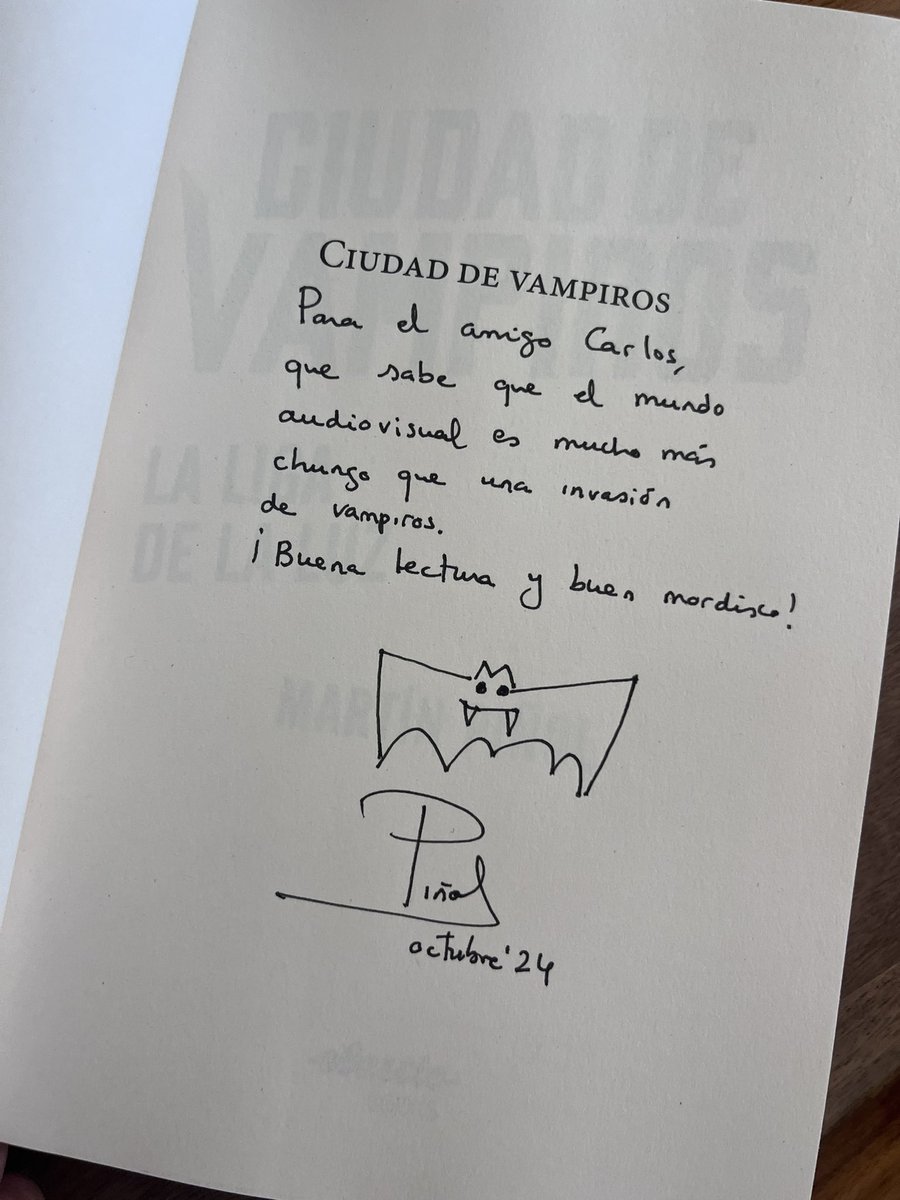 CIUDAD DE VAMPIROS
Para el amigo Carlos,
que sabe que el mundo
audiovisual es mucho más
chungo que una invasión
de vampiros.
¡Buena lectura y buen mordisco!
Piñol
octubre'24
CIUDAD DE
VAMPIROS
LA LIGA
DE LA LUZ
MARTÍN PIÑOL